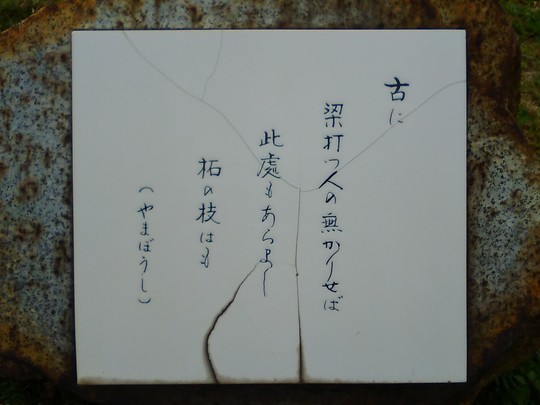 古に
梁打つ人の無かりせば
此處もあらまし
柘の枝はも
(やまぼうし)